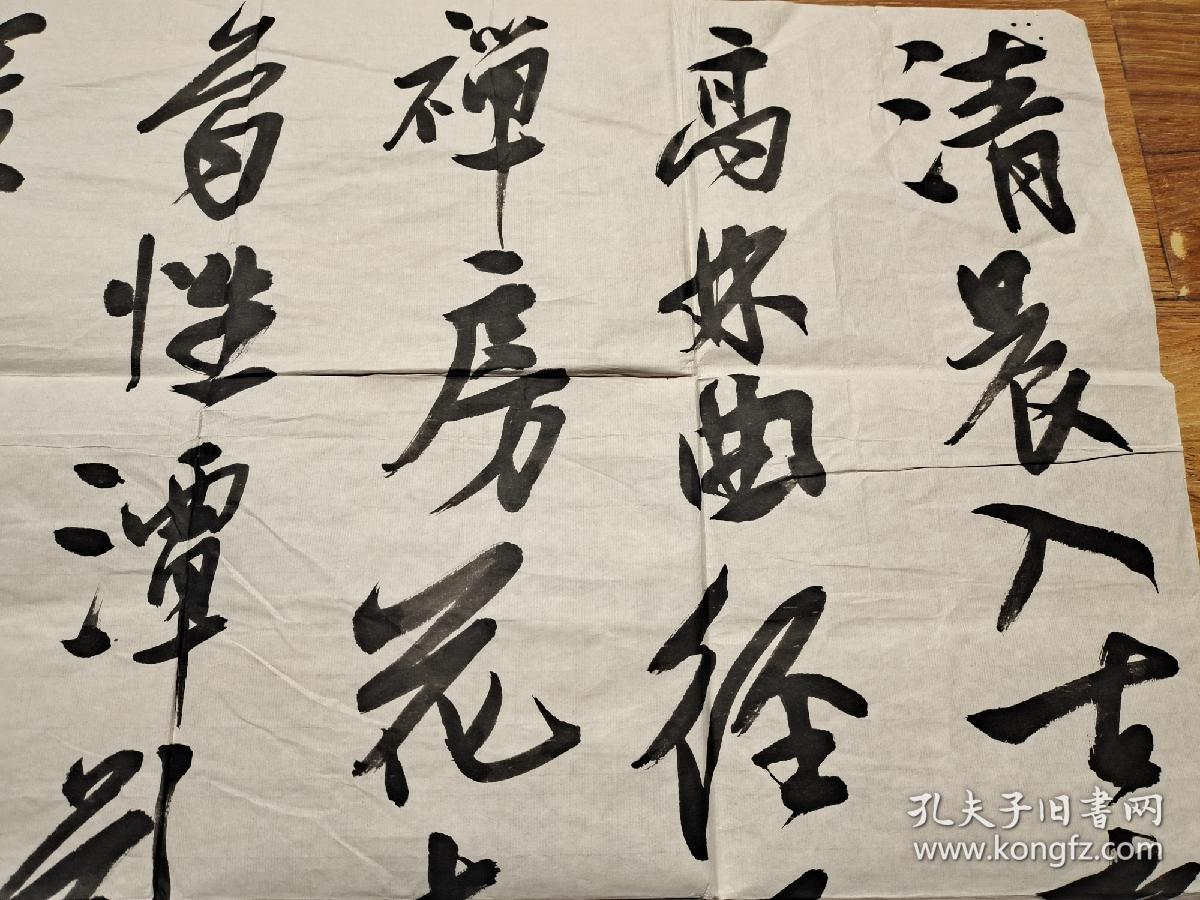 清晨入古
高林曲径
禅房花
性潭
孔夫子旧書网
www.kongfz.com